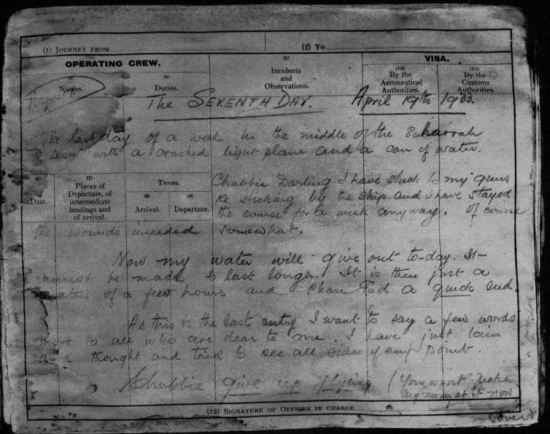 (1) JOURNEY FROM (2) To
OPERATING CREW. VISA.
Names. Duties. Incidents and Observations. (10) By the Aeronautical Authorities. (11) By the Customs Authorities.
The SEVENTH DAY. April 19th 1933.
The last day of a week in the middle of the Saharrah
with a crashed light plane and a can of water.
Chubbie Darling I have stuck to my guns
re sticking by the ship and I have stayed
the course for a week anyway. Of course
Date. (2) Places of Departure, of intermediate landings and of arrival. Times. Arrival. Departure.
the wounds impeded somewhat.
Now my water will give out to-day. It
cannot be made to last longer. It is then just a
matter of a few hours and please God a quick end.
As this is the last entry I want to say a few words
more to all who are dear to me. I have just lain
and thought and tried to see all sides of any point.
Chubbie give up flying (You wont make
any money at it now
(12) SIGNATURE OF OFFICER IN CHARGE
(over)